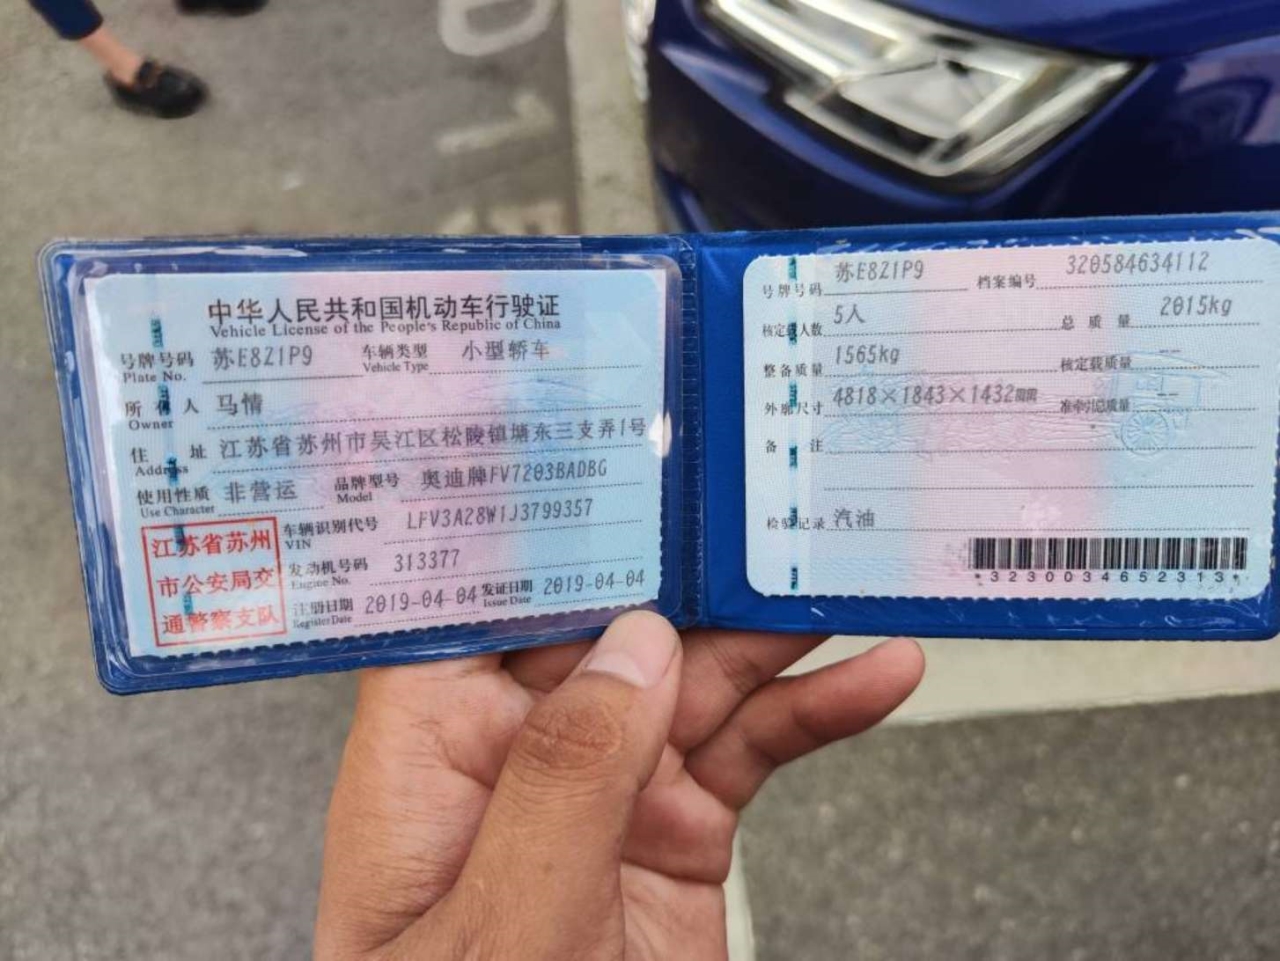 中华人民共和国机动车行驶证
Vehicle License of the People's Republic of China
号牌号码 苏E8Z1P9 车辆类型 小型轿车
Plate No. Vehicle Type
所有人 马情
Owner
住址 江苏省苏州市吴江区松陵镇塘东三支弄1号
Address
使用性质 非营运 品牌型号 奥迪牌FV7203BADBG
Use Character Model
江苏省苏州
市公安局交
通警察支队
车辆识别代号 LFV3A28W1J3799357
VIN
发动机号码 313377
Engine No.
注册日期 2019-04-04 发证日期 2019-04-04
Register Date Issue Date
号牌号码 苏E8Z1P9 档案编号 320584634112
核定载人数 5人 总质量 2015kg
整备质量 1565kg 核定载质量 --
外廓尺寸 4818×1843×1432mm 准牵引总质量 --
备注
检验记录 汽油
*3230034652313*